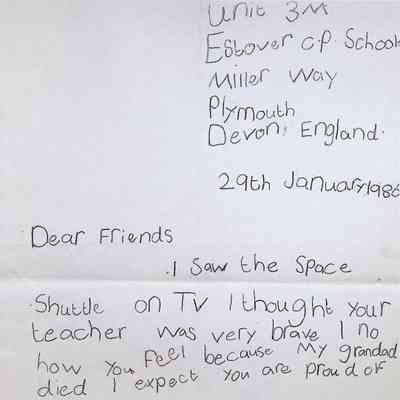 Unit 3M
Estover c.p. School
Miller Way
Plymouth
Devon, England.
29th January 1986
Dear Friends
I Saw the Space
Shuttle on TV I thought your
teacher was very brave I no
how you feel because My grandad
died I expect you are proud of